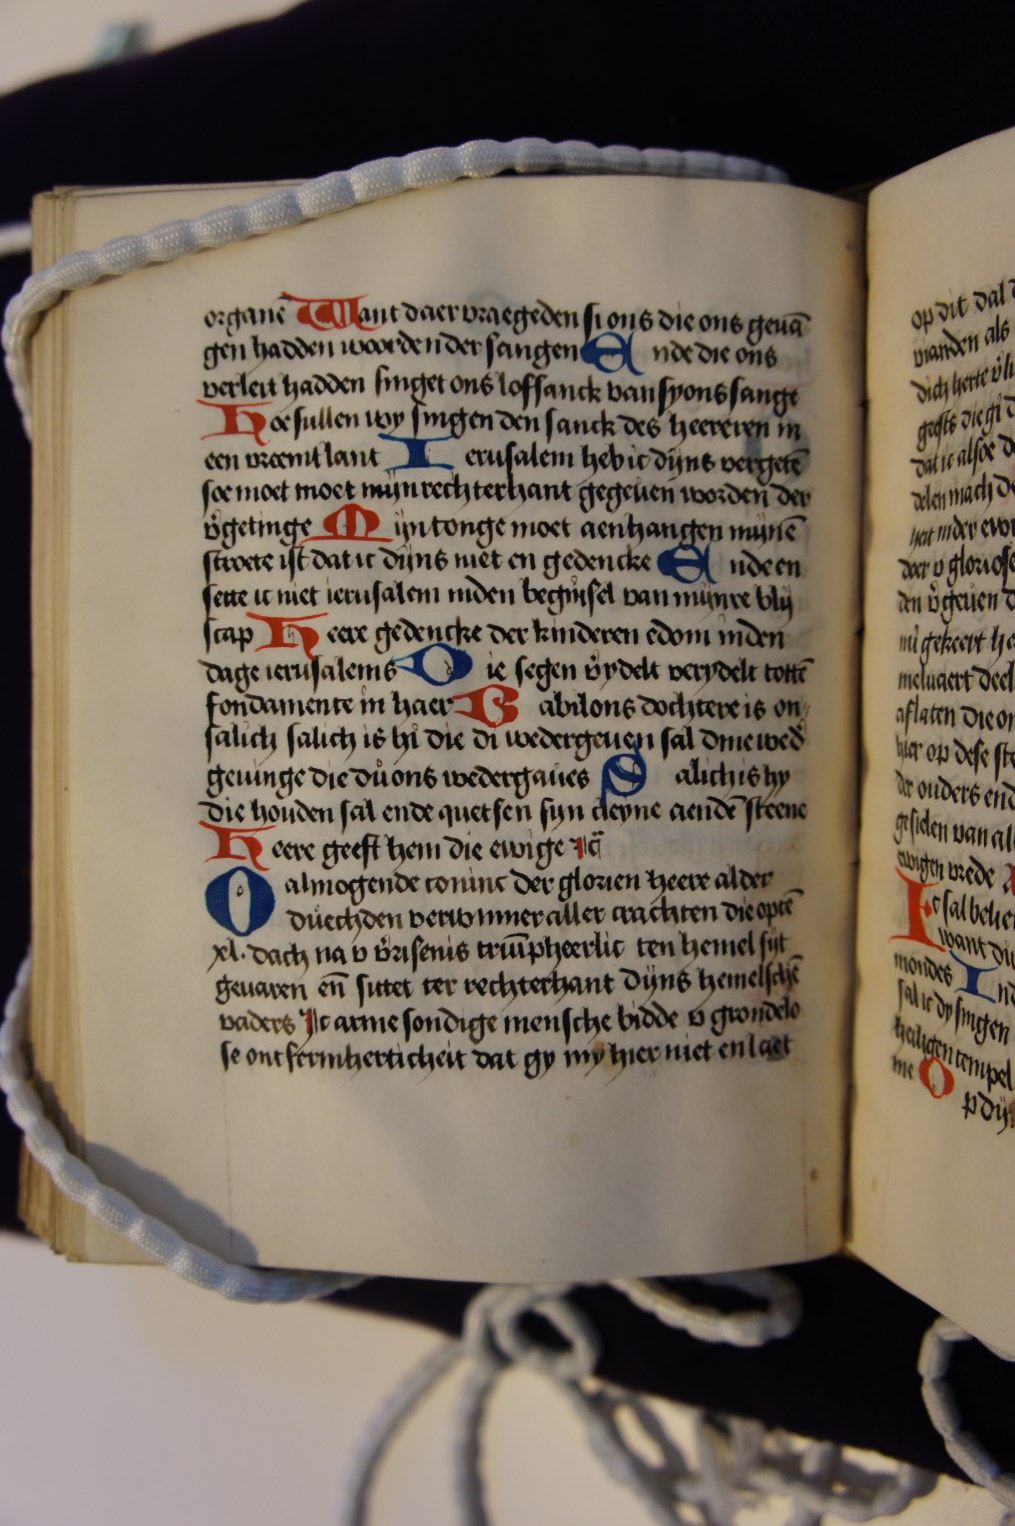 organē Want daer vraegeden si ons die ons geuā
gen hadden woorden der sangen Ende die ons
verleit hadden singet ons loffsanck van syons sange
Hoe sullen wy singen den sanck des heereren in
een vreemt lant Ierusalem heb ic dijns vergetē
soe moet moet mijn rechterhant gegeuen worden der
v̄getinge Mijn tonge moet aenhangen mijnē
stroete ist dat ic dijns niet en gedencke Ende en
sette ic niet ierusalem inden beginsel van mijnre blij
scap Heere gedencke der kinderen edom inden
dage ierusalems Die segen v̄ydelt verydelt tottē
fondamente in haer Babilons dochtere is on
salich salich is hi die di wedergeuen sal dine wed̄
geuinge die du ons wedergaues Salich is hy
die houden sal ende quetsen sijn cleyne aendē steene
Heere geeft hem die ewige
O almogende coninc der glorien heere alder
duechden verwinner aller crachten die optē
xl. dach na v v̄risenis triūpheerlic ten hemel sijt
geuaren eñ sittet ter rechterhant dijns hemelschē
vaders Ic arme sondige mensche bidde v grondelo
se ontfermherticheit dat gy my hier niet en laet
op dit dal
vianden als
dich herte
geests die gi
dat ic alsoe
delen mach
doer v gloriose
den v̄geuen
mi gekeert
meluaert deel
aflaten die
hier op dese
der ouders
gesielen van al
ewigen vrede
want du
mondes
sal ic dy singen
heiligen tempel
me O